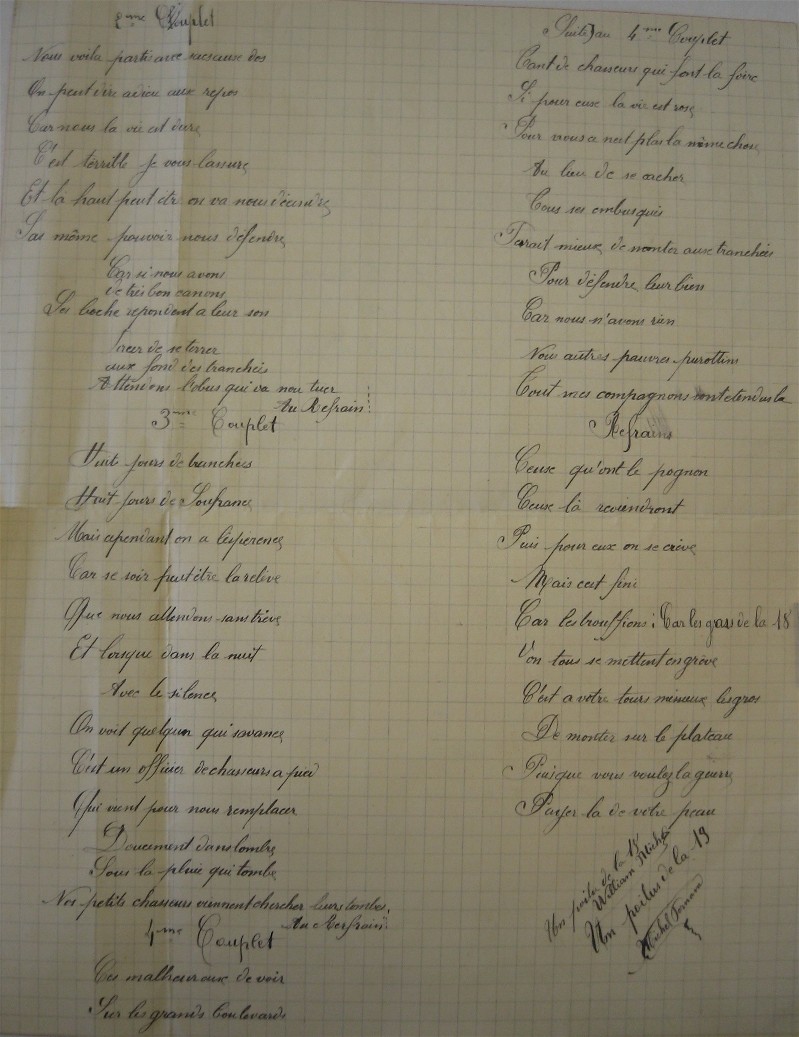 2eme Couplet
Nous voila partis avec sacs aux dos
On peut dire adieu aux repos
Car nous la vie est dure
C'est terrible je vous lassure
Et la haut peut etre on va nous déscendre
Sas même pouvoir nous defendre
Car si nous avons
de trés bon canons
Les boche repondent a leur son
de se terrer
aux fond des tranchéis
Attendons l'obus qui va nou tuer
Au Refrain
3eme Couplet
Huit jours de tranchées
Huit jours de Soufrance
Mais cependant on a l'ésperence
Car se soir peut être la relève
Que nous attendons sans trève
Et lorsque dans la nuit
Avec le silence
On voit quelquun qui savance
C'est un officier de chasseurs a pied
Qui vient pour nous remplacer
Doucement dans lombre
Sous la pluie qui tombe
Nos petits chasseurs viennent chercher leurs tombes
Au Refrain
4me Couplet
Ces malheureux de voir
Sur les grands boulevards
Suite au 4me Couplet
Tant de chasseurs qui font la foire
Si pour eux la vie est rose
Pour nous ce nest plas la même chose
Au lieu de se cacher
Tous ses embusqués
Ferait mieux de monter aux tranchéis
Pour défendre leur bien
Car nous n'avons rien
Nous autres pauvres purottin
Tout mes compagnons sont etendus la
Refrains
Ceux qu'ont le pognon
Ceux là reviendront
Puis pour eux on se crève
Mais cest fini
Car les trouffions : Car les grass de la 18
Von tous se mettent en grève
C'est a votre tours mésieux les gros
De monter sur le plateau
Puisque vous voulez la guerre
Payer la de votre peau
Un poilu de la 18
William Michel
Un poilus de la 19
Michel